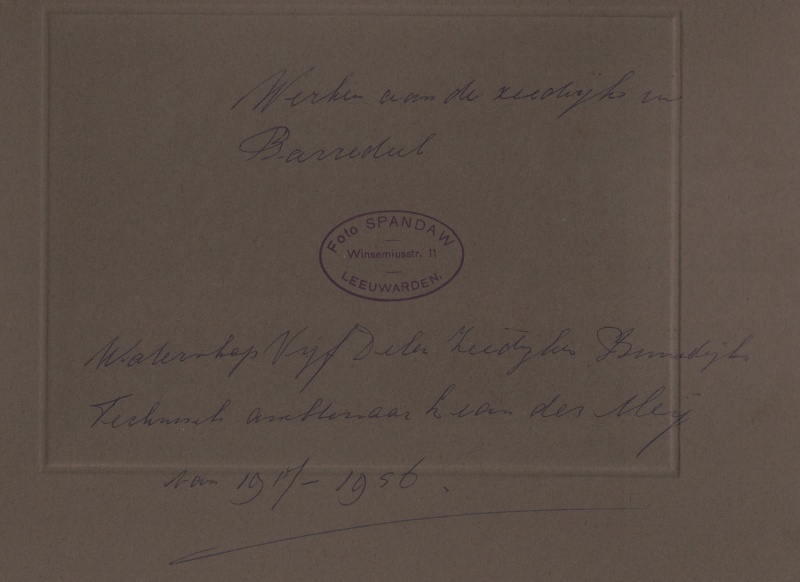 Werken aan de zeedijk in
Barradeel
Foto SPANDAW
Winsemiusstr. 11
LEEUWARDEN.
Waterschap Vijf Delen Zeedijken Binnendijks
Technisch ambtenaar K van der Meij
van 1917 - 1956.